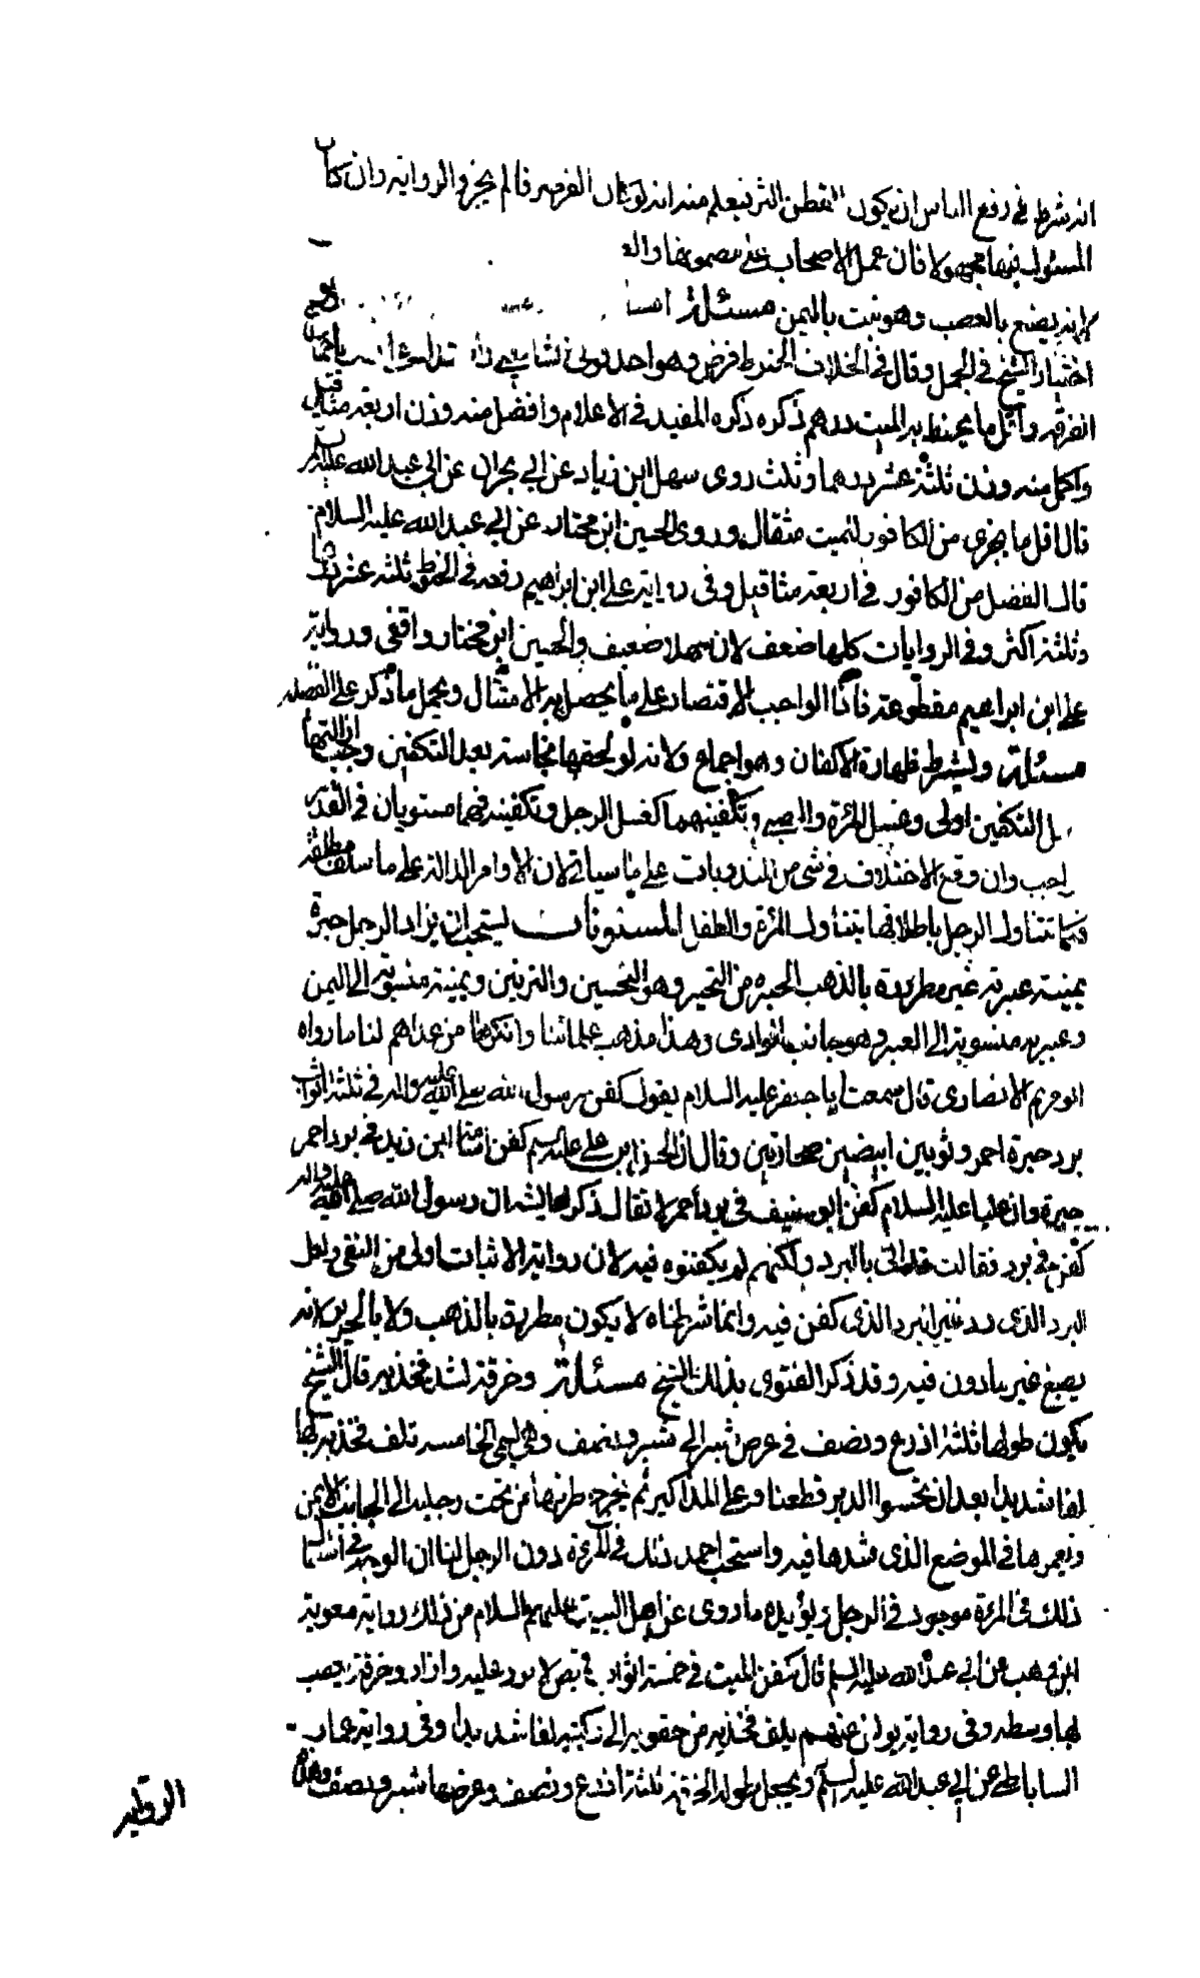 انه شرط في رفع الباس ان يكون القطن اكثر فيعلم منه انه لو كان القز صرفا لم يجز والرواية وان كان
المسئول فيها مجهولا فان عمل الاصحاب على مضمونها
لانه يصنع بالعصب وهو نبت باليمن مسئلة
اختيار الشيخ في الجمل وقال في الخلاف الحنوط فرض وهو احد قولي الشافعي
الفرقة واقل ما يحنط به الميت درهم ذكره ذكره المفيد في الاعلام وافضل منه وزن اربعة مثاقيل
واكمل منه وزن ثلثة عشر درهما وثلث روى سهل ابن زياد عن ابي نجران عن ابي عبد الله عليه السلم
قال اقل ما يجزي من الكافور للميت مثقال وروى الحسين ابن مختار عن ابي عبد الله عليه السلام
قال الفضل من الكافور في اربعة مثاقيل وفي رواية علي ابن ابراهيم رفعه في الحنوط ثلثة عشر درهما
وثلثة اكثر وفي الروايات كلها ضعف لان سهلا ضعيف والحسين ابن مختار واقفي ورواية
علي ابن ابراهيم مقطوعة فاذا الواجب الاقتصار على ما يحصل به الامتثال ويحمل ما ذكر على الفضيلة
مسئلة ويشترط طهارة الاكفان وهو اجماع ولانه لو لحقها نجاسة بعد التكفين وجب ازالتها
بل التكفين اولى وغسل المرئة والصبي وتكفينهما كغسل الرجل وتكفينه فهما مستويان في القدر
واجب وان وقع الاختلاف في شئ من المندوبات على ما سياتي لان الاوامر الدالة على ما سلف مطلقة
فكما تتناول الرجل باطلاقها يتناول المرئة والطفل المسنونات يستحب ان يزاد الرجل حبرة
يمنية عبرية غير مطرزة بالذهب الحبرة من التحبير وهو التحسين والتزيين ويمنية منسوبة الى اليمن
وعبرية منسوبة الى العبر وهو جانب الوادي وهذا مذهب علمائنا وانكرها من عداهم لنا ما رواه
ابو مريم الانصاري قال سمعت ابا جعفر عليه السلام يقول كفن رسول الله صلى الله عليه واله في ثلثة اثواب
برد حبرة احمر وثوبين ابيضين صحاريين وقال ان الحسن ابن علي عليه السلم كفن اسامة ابن زيد في برد احمر
حبرة وان عليا عليه السلام كفن ابن حنيف في برد احمر لا يقال ذكر لعايشة ان رسول الله صلى الله عليه واله
كفن في برد فقالت قد اتى بالبرد ولكنهم لم يكفنوه فيه لان رواية الاثبات اولى من النفي ولعل
البرد الذي رد غير البرد الذي كفن فيه وانما شرطناه لا يكون مطرزة بالذهب ولا بالحرير لانه
يصبغ غير ماذون فيه وقد ذكر الفتوى بذلك الشيخ مسئلة وخرقة لشد فخذيه قال الشيخ
يكون طولها ثلثة اذرع ونصف في عرض شبر الى شبر ونصف وهي تسمى الخامسة تلف فخذيه بها
لفا شديدا بعد ان يحشوا الدبر قطنا وعلى المذاكير ثم يخرج طرفها من تحت رجليه الى الجانب الايمن
ويغمرها في الموضع الذي شدها فيه واستحب احمد ذلك في المرئة دون الرجل لنا ان الوجه في اشتمال
ذلك في المرئة موجود في الرجل ويؤيده ما روى عن اهل البيت عليهم السلام من ذلك رواية معوية
ابن وهب عن ابي عبد الله عليه السلم قال يكفن الميت في خمسة اثواب قميص لا يزر عليه وازار وخرقة يعصب
بها وسطه وفي رواية يونس عنهم يلف فخذيه من حقويه الى ركبتيه لفا شديدا وفي رواية عمار
الساباطي عن ابي عبد الله عليه السلم ويجعل طول الخرقة ثلثة اذرع ونصف وعرضها شبر ونصف وهذه
الرواية